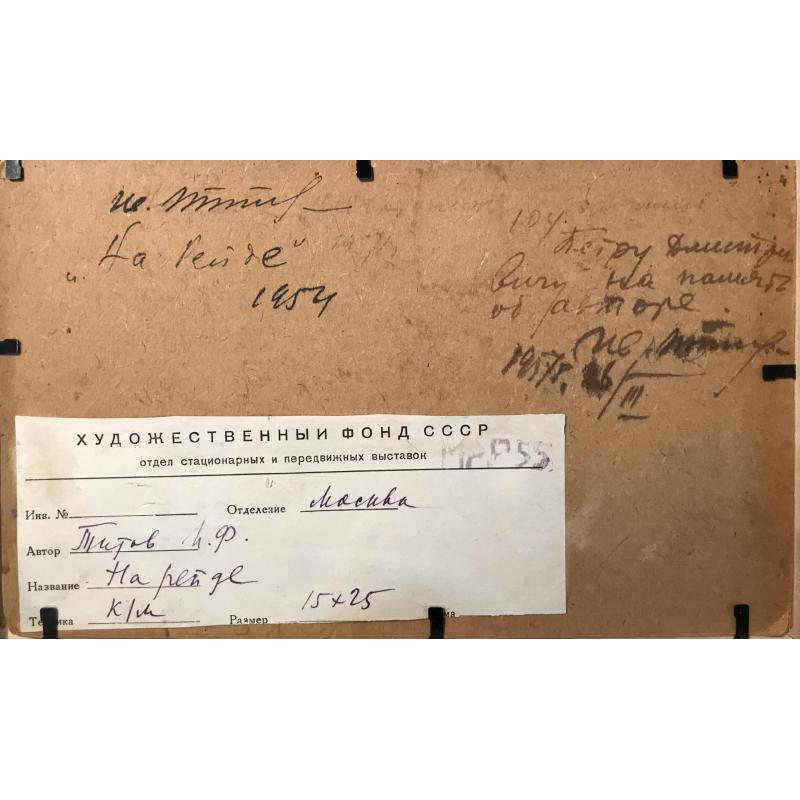 „На Рейде“
1954
Петру Дмитрие
вичу на память
об авторе.
1957г. 26/III
ХУДОЖЕСТВЕННЫЙ ФОНД СССР
ОТДЕЛ СТАЦИОНАРНЫХ И ПЕРЕДВИЖНЫХ ВЫСТАВОК
Инв. № Отделение Москва
Автор Титов И.Ф.
Название На рейде
Техника К/М Размер 15х25